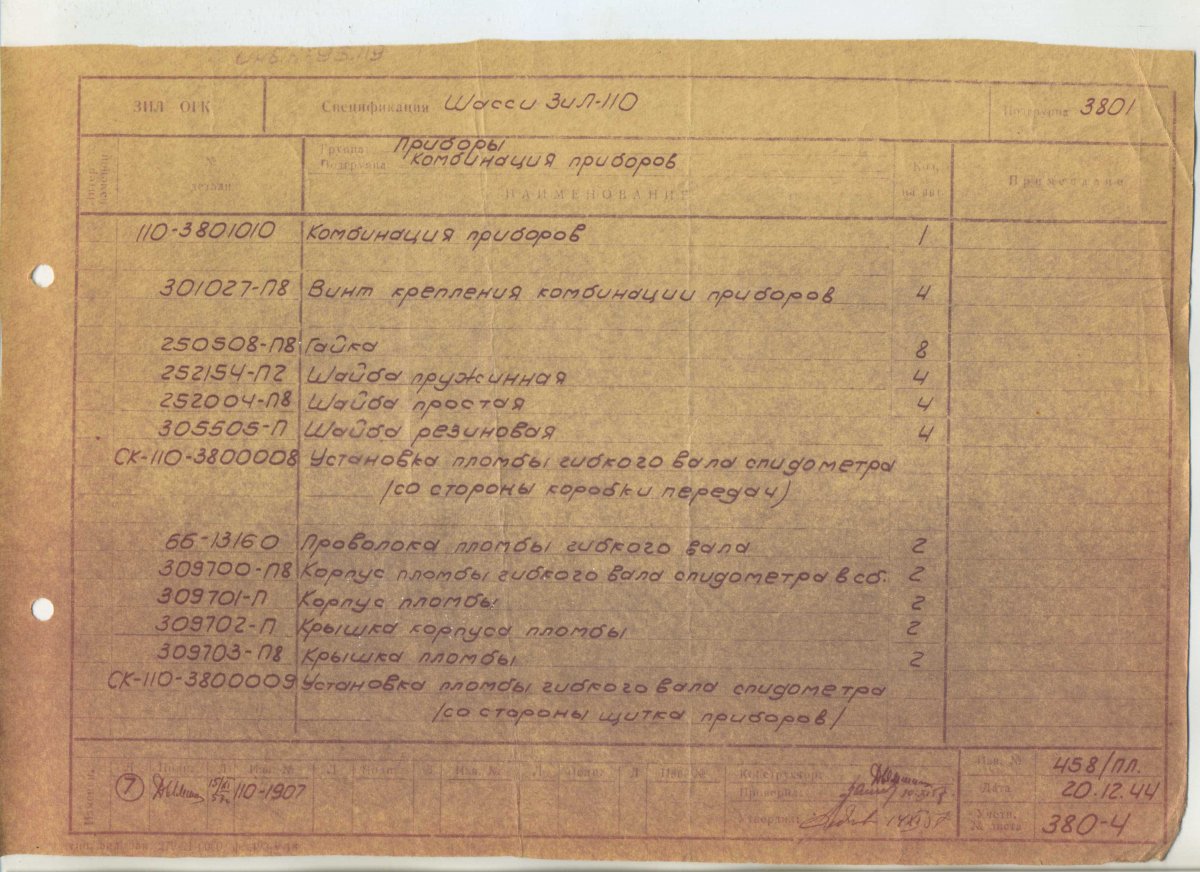 ЗИЛ ОГК Спецификация Шасси ЗиЛ-110 Подгруппа 3801
№ детали Группа Приборы Кол. Примечание
Подгруппа комбинация приборов
НАИМЕНОВАНИЕ
110-3801010 Комбинация приборов 1
301027-П8 Винт крепления комбинации приборов 4
250508-П8 Гайка 8
252154-П2 Шайба пружинная 4
252004-П8 Шайба простая 4
305505-П Шайба резиновая 4
СК-110-3800008 Установка пломбы гибкого вала спидометра
/со стороны коробки передач)
ББ-13160 Проволока пломбы гибкого вала 2
309700-П8 Корпус пломбы гибкого вала спидометра в сб. 2
309701-П Корпус пломбы 2
309702-П Крышка корпуса пломбы 2
309703-П8 Крышка пломбы 2
СК-110-3800009 Установка пломбы гибкого вала спидометра
/со стороны щитка приборов/
7 110-1907
Конструктор
Проверил
Утвердил
Инв. № 458/пл.
Дата 20.12.44
№ листа 380-4